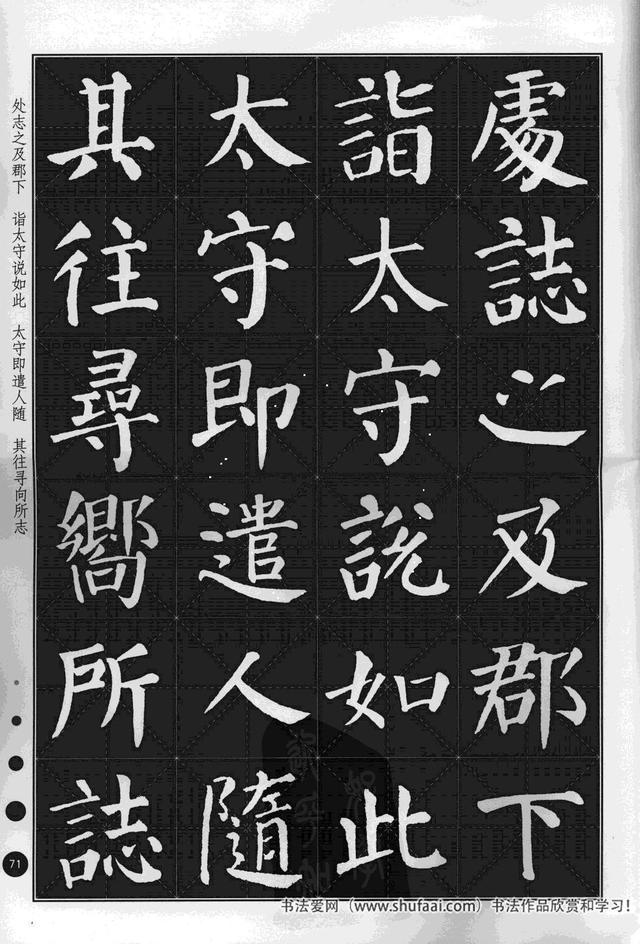 處誌之及郡下
詣太守說如此
太守即遣人隨
其往尋嚮所誌
处志之及郡下 诣太守说如此 太守即遣人随 其往寻向所志
71
书法爱网（www.shufaai.com）书法作品欣赏和学习！